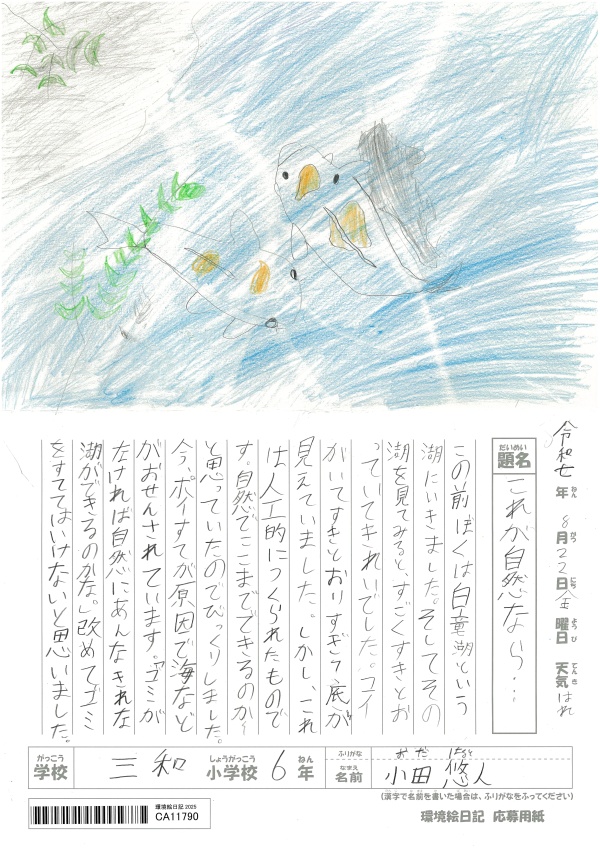 令和七年 8月22日金曜日 天気 はれ
ねん がつ にち ようび てんき
だいめい
題名 これが自然なら…
この前ぼくは白竜湖という
湖にいきました。そしてその
湖を見てみると、すごくすきとお
っていてきれいでした。コイ
がいてすきとおりすぎて底が
見えていました。しかし、これ
は人工的につくられたもので
す。自然でここまでできるのか
と思っていたのでびっくりしました。
今、ポイすてが原因で海など
がおせんされています。「ゴミが
なければ自然にあんなきれな
湖ができるのかな。」改めてゴミ
をすててはいけないと思いました。
がっこう しょうがっこう ねん
学校 三和 小学校 6年
ふりがな おだ はると
なまえ
名前 小田 悠人
(漢字で名前を書いた場合は、ふりがなをふってください)
環境絵日記 2025
CA11790
環境絵日記 応募用紙